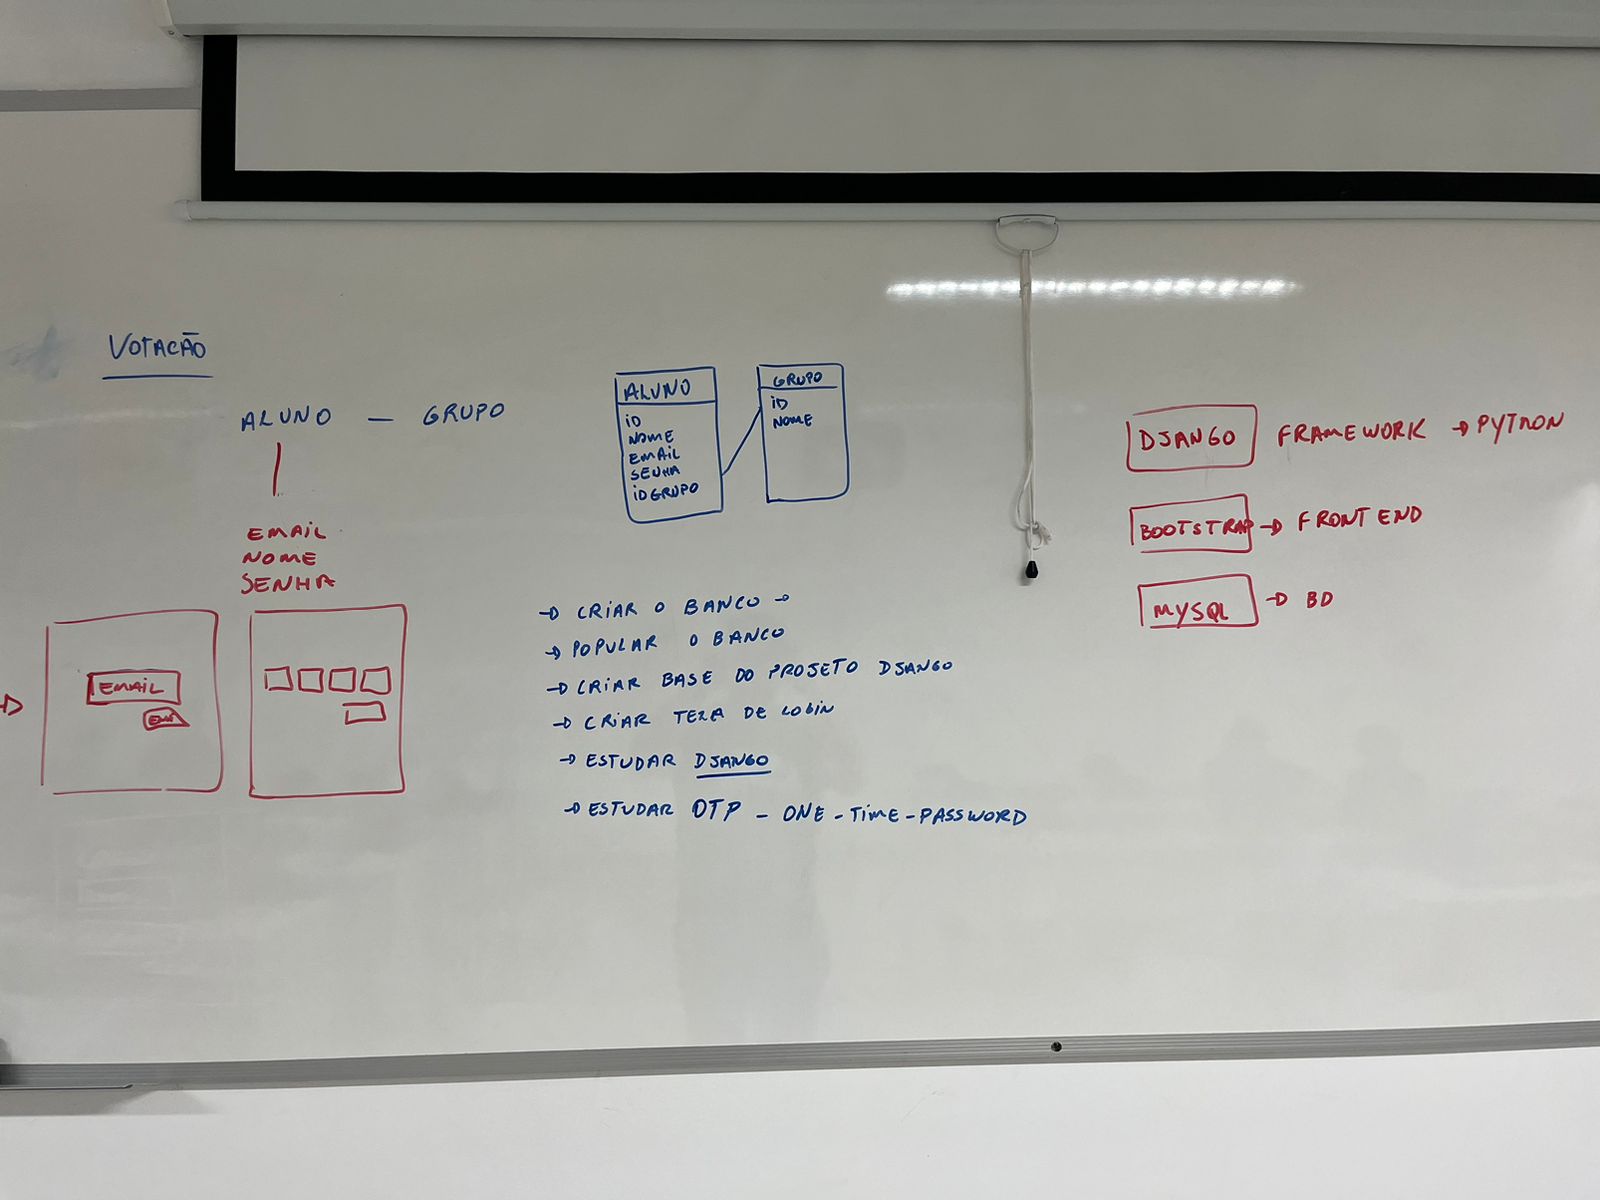 VOTACÃO
ALUNO — GRUPO
EMAIL
NOME
SENHA
EMAIL
ALUNO
ID
NOME
EMAIL
SENHA
IDGRUPO
GRUPO
ID
NOME
→ CRIAR O BANCO →
→ POPULAR O BANCO
→ CRIAR BASE DO PROJETO DJANGO
→ CRIAR TELA DE LOGIN
→ ESTUDAR DJANGO
→ ESTUDAR OTP - ONE-TIME-PASSWORD
DJANGO FRAMEWORK → PYTHON
BOOTSTRAP → FRONT END
MYSQL → BD